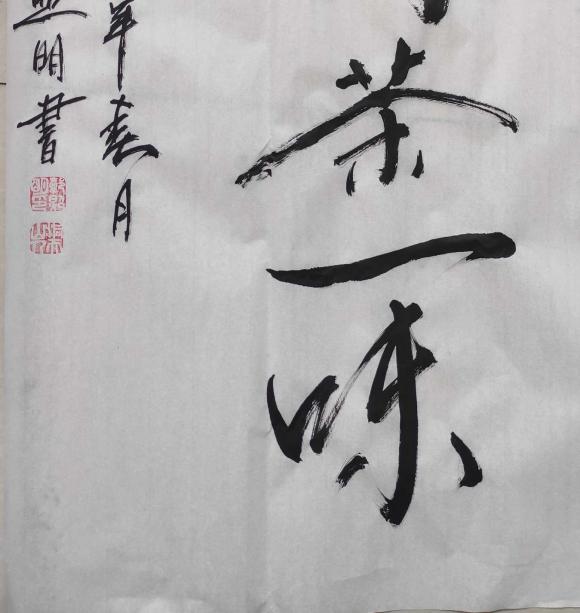 茶一味
年春月
明書